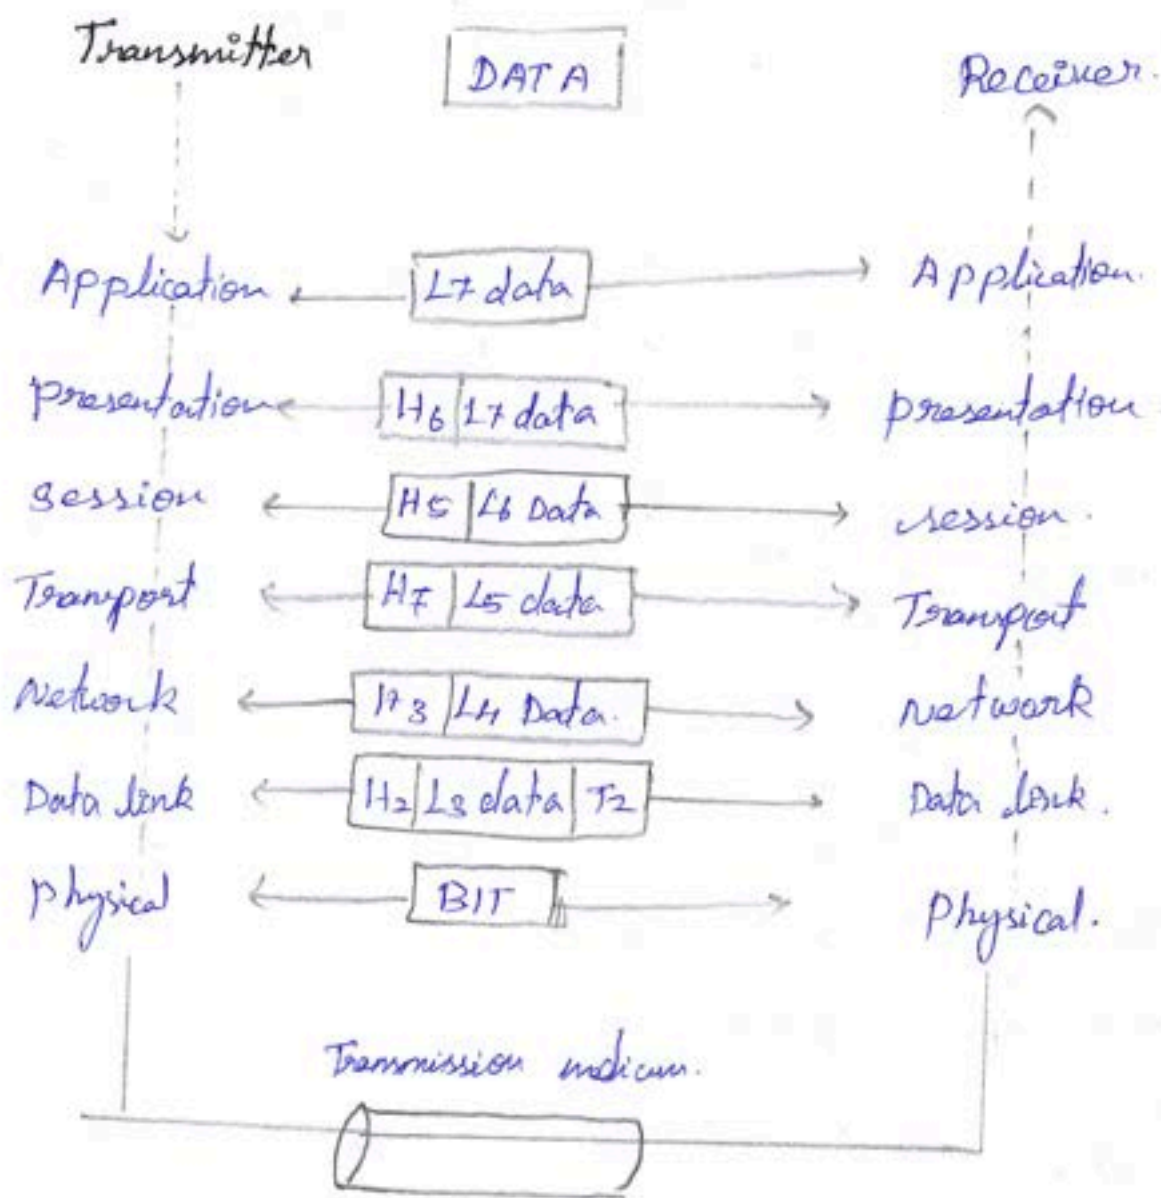 Transmitter DATA Receiver.
Application L7 data Application.
Presentation H6 L7 data presentation
Session H5 L6 Data session.
Transport H7 L5 data Transport
Network H3 L4 Data. Network
Data link H2 L3 data T2 Data link.
Physical BIT Physical.
Transmission medium.